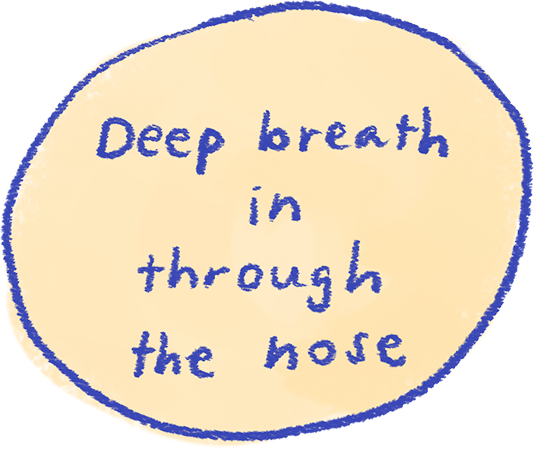 Deep breath
in
through
the nose